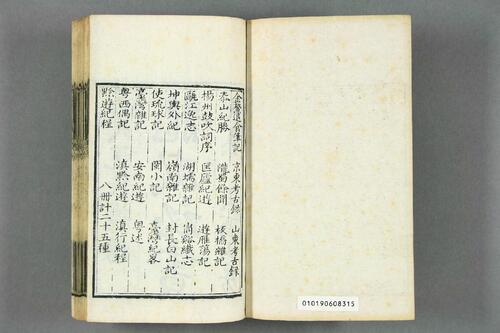 金鰲退食筆記 京東考古錄 山東考古錄
泰山紀勝 隴蜀餘聞 板橋雜記
揚州鼓吹詞序 匡廬紀遊 遊雁蕩記
甌江逸志 湖壖雜記 峒谿纖志
坤輿外紀 嶺南雜記 封長白山記
使琉球記 閩小記 臺灣紀畧
臺灣雜記 安南紀遊 粤述
粤西偶記 滇黔紀遊 滇行紀程
黔遊紀程 八冊計二十五種
010190608315